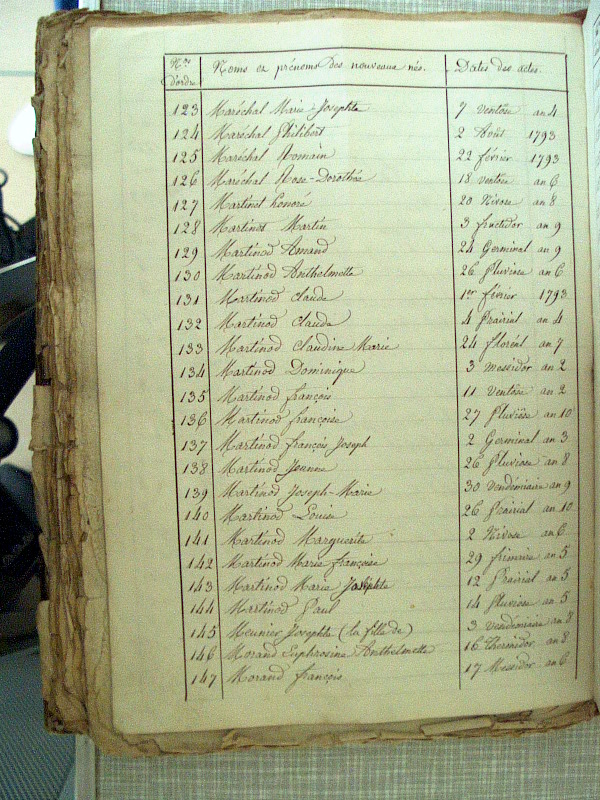 Nos d'ordre Noms et prénoms des nouveaux nés. Dates des actes.
123 Maréchal Marie-Josephte 7 ventôse an 4
124 Maréchal Philibert 2 Août 1793
125 Maréchal Romain 22 février 1793
126 Maréchal Rose-Dorothée 18 ventôse an 6
127 Martinet honoré 20 Nivose an 8
128 Martinod Martin 3 fructidor an 9
129 Martinod Amand 24 Germinal an 9
130 Martinod Anthelmette 26 Pluviose an 6
131 Martinod Claude 1er février 1793
132 Martinod Claude 4 Prairial an 4
133 Martinod Claudine Marie 24 floréal an 7
134 Martinod Dominique 3 messidor an 2
135 Martinod françois 11 Ventôse an 2
136 Martinod françoise 27 Pluviôse an 10
137 Martinod françois Joseph 2 Germinal an 3
138 Martinod Jeanne 26 Pluviose an 8
139 Martinod Joseph-Marie 30 vendémiaire an 9
140 Martinod Louise 26 Prairial an 10
141 Martinod Marguerite 2 Nivose an 6
142 Martinod Marie françoise 29 frimaire an 5
143 Martinod Marie Josephte 12 Prairial an 5
144 Martinod Paul 14 Pluviôse an 5
145 Meunier Josephte (la fille de) 3 vendémiaire an 8
146 Morand Euphrosine Anthelmette 16 thermidor an 8
147 Morand françois 17 Messidor an 6